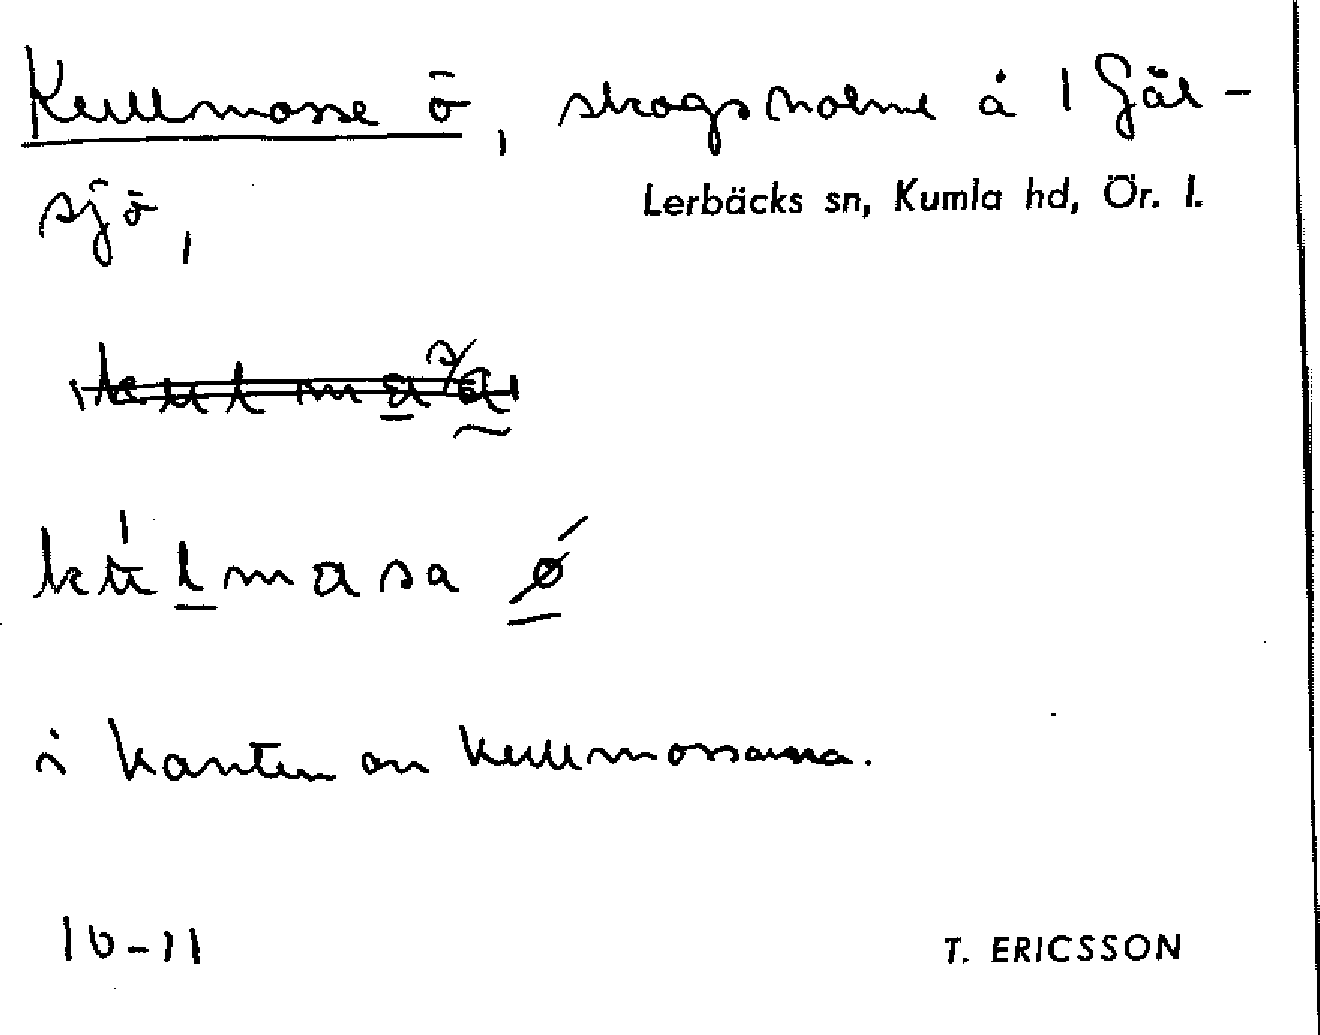 Kullmosse ö, skogsholme å 1 Gål-
sjö,
Lerbäcks sn, Kumla hd, Ör. l.
i kanten av Kullmossarna.
10-11
T. ERICSSON